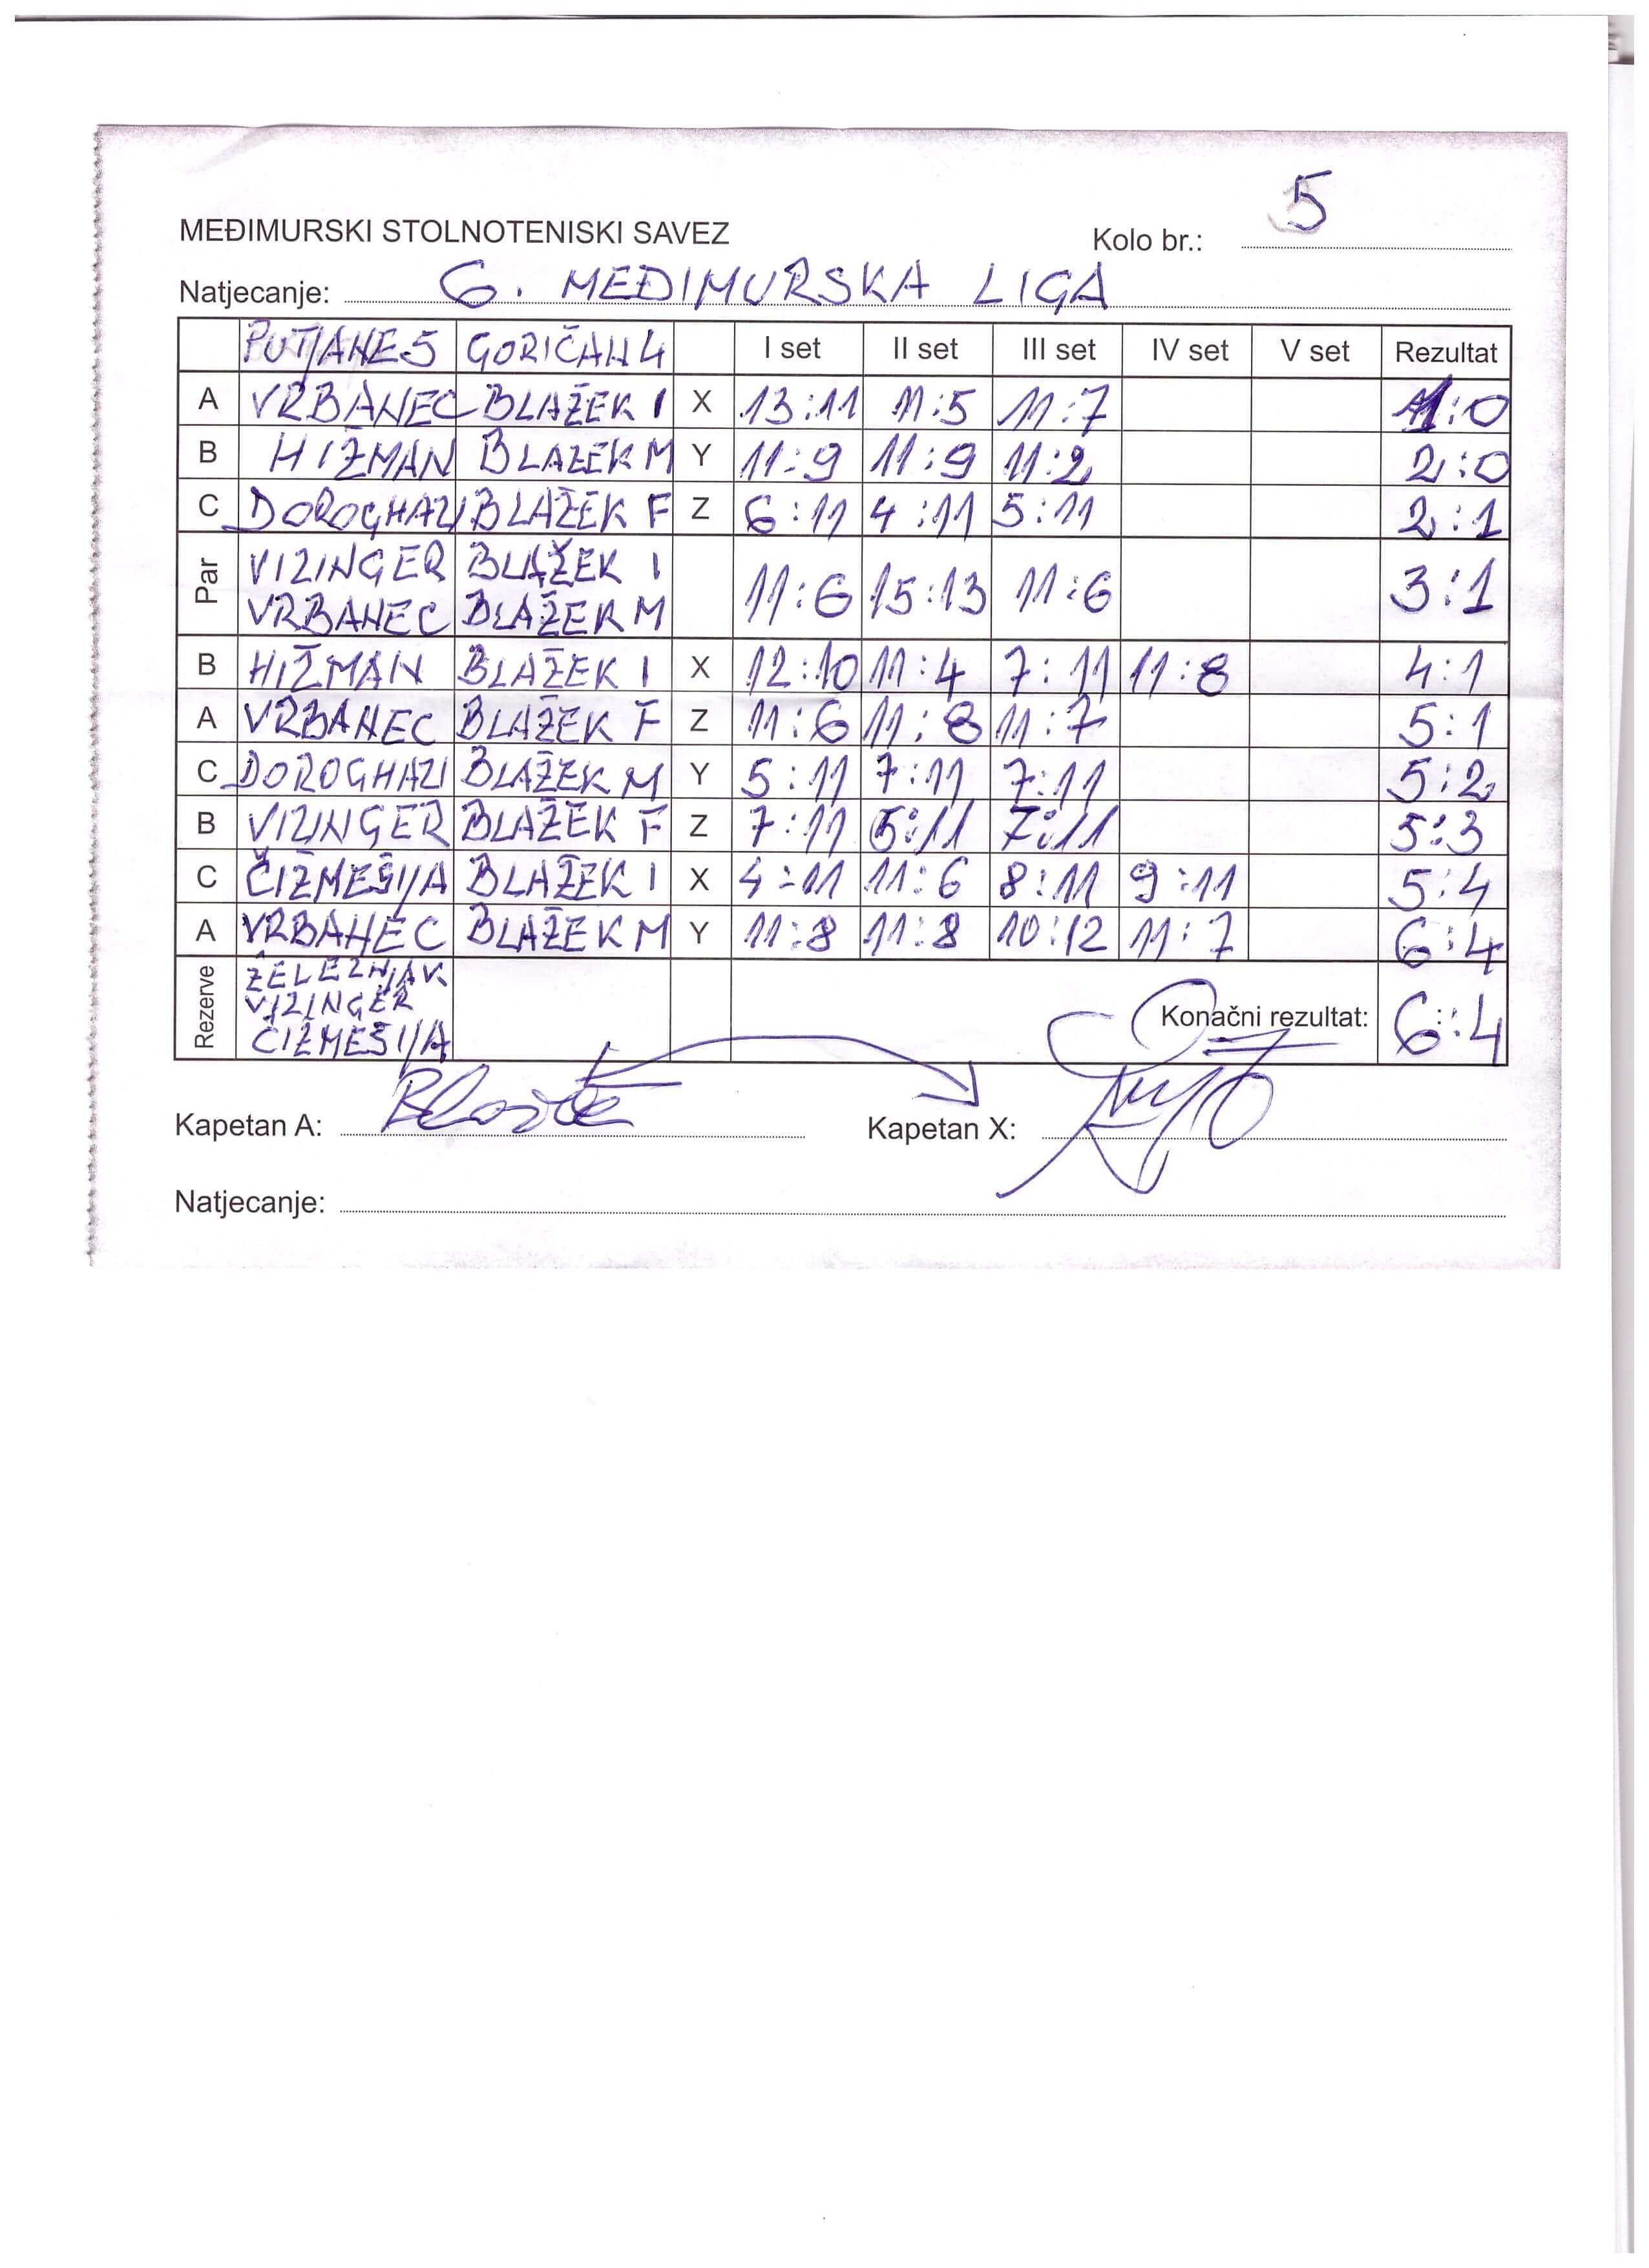 5
MEĐIMURSKI STOLNOTENISKI SAVEZ Kolo br.:
Natjecanje: 6. MEĐIMURSKA LIGA
PUTJANE 5 GORIČAN 4 I set II set III set IV set V set Rezultat
A VRBANEC BLAŽEK I X 13:11 11:5 11:7 1:0
B HIŽMAN BLAŽEK M Y 11:9 11:9 11:2 2:0
C DOROGHAZI BLAŽEK F Z 6:11 4:11 5:11 2:1
Par VIZINGER BLAŽEK I 11:6 15:13 11:6 3:1
VRBANEC BLAŽEK M
B HIŽMAN BLAŽEK I X 12:10 11:4 7:11 11:8 4:1
A VRBANEC BLAŽEK F Z 11:6 11:8 11:7 5:1
C DOROGHAZI BLAŽEK M Y 5:11 7:11 7:11 5:2
B VIZINGER BLAŽEK F Z 7:11 5:11 7:11 5:3
C ČIŽMEŠIJA BLAŽEK I X 4:11 11:6 8:11 9:11 5:4
A VRBANEC BLAŽEK M Y 11:8 11:8 10:12 11:7 6:4
Rezerve ŽELEZNJAK
VIZINGER
ČIŽMEŠIJA
Konačni rezultat: 6:4
Kapetan A: Blažek Kapetan X:
Natjecanje: